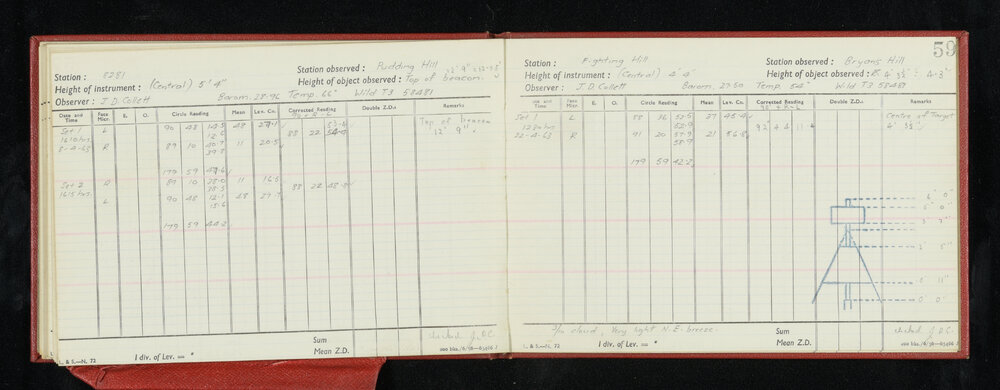 Station : 8281
Station observed : Pudding Hill
Height of instrument : (Central) 5' 4"
Height of object observed : Top of beacon.
Observer : J.D. Collett Barom. 28.96 Temp. 66° Wild T3 58481
Date and Time Face Micr. E. O. Circle Reading Mean Lev. Co. Corrected Reading Double Z.D.s Remarks
Set 1 L 90 48 48 27.1 Top of beacon
1610 hrs. 88 22 12' 9".
8-4-63 R 89 10 40.7 11 20.5
39.8
179 59 47.6
Set 2 R 89 10 11 16.5 88 22
1615 hrs. L 90 48 12.1 48 27.7
179 59 44.2
Sum
Mean Z.D.
L. & S.—N, 72 1 div. of Lev. = "
checked J.D.C.
59
Station : Fighting Hill
Station observed : Bryans Hill
Height of instrument : (Central) 4' 4"
Height of object observed : 4' 3½"
Observer : J.D. Collett Barom. Temp. 54° Wild T3 58481
Date and Time Face Micr. E. O. Circle Reading Mean Lev. Co. Corrected Reading Double Z.D.s Remarks
Set 1 L 88 36 53.5 37 45.4 Centre of Target
1230 hrs 52.9 4' 3½"
22-4-63 R 91 20 57.9 21 56.8
58.9
179 59 42.2
6' 0"
5' 0"
3' 7"
2' 5"
0' 11"
0' 0"
cloud, Very light N.E. breeze.
Sum
Mean Z.D.
L. & S.—N, 72 1 div. of Lev. = "
checked J.D.C.